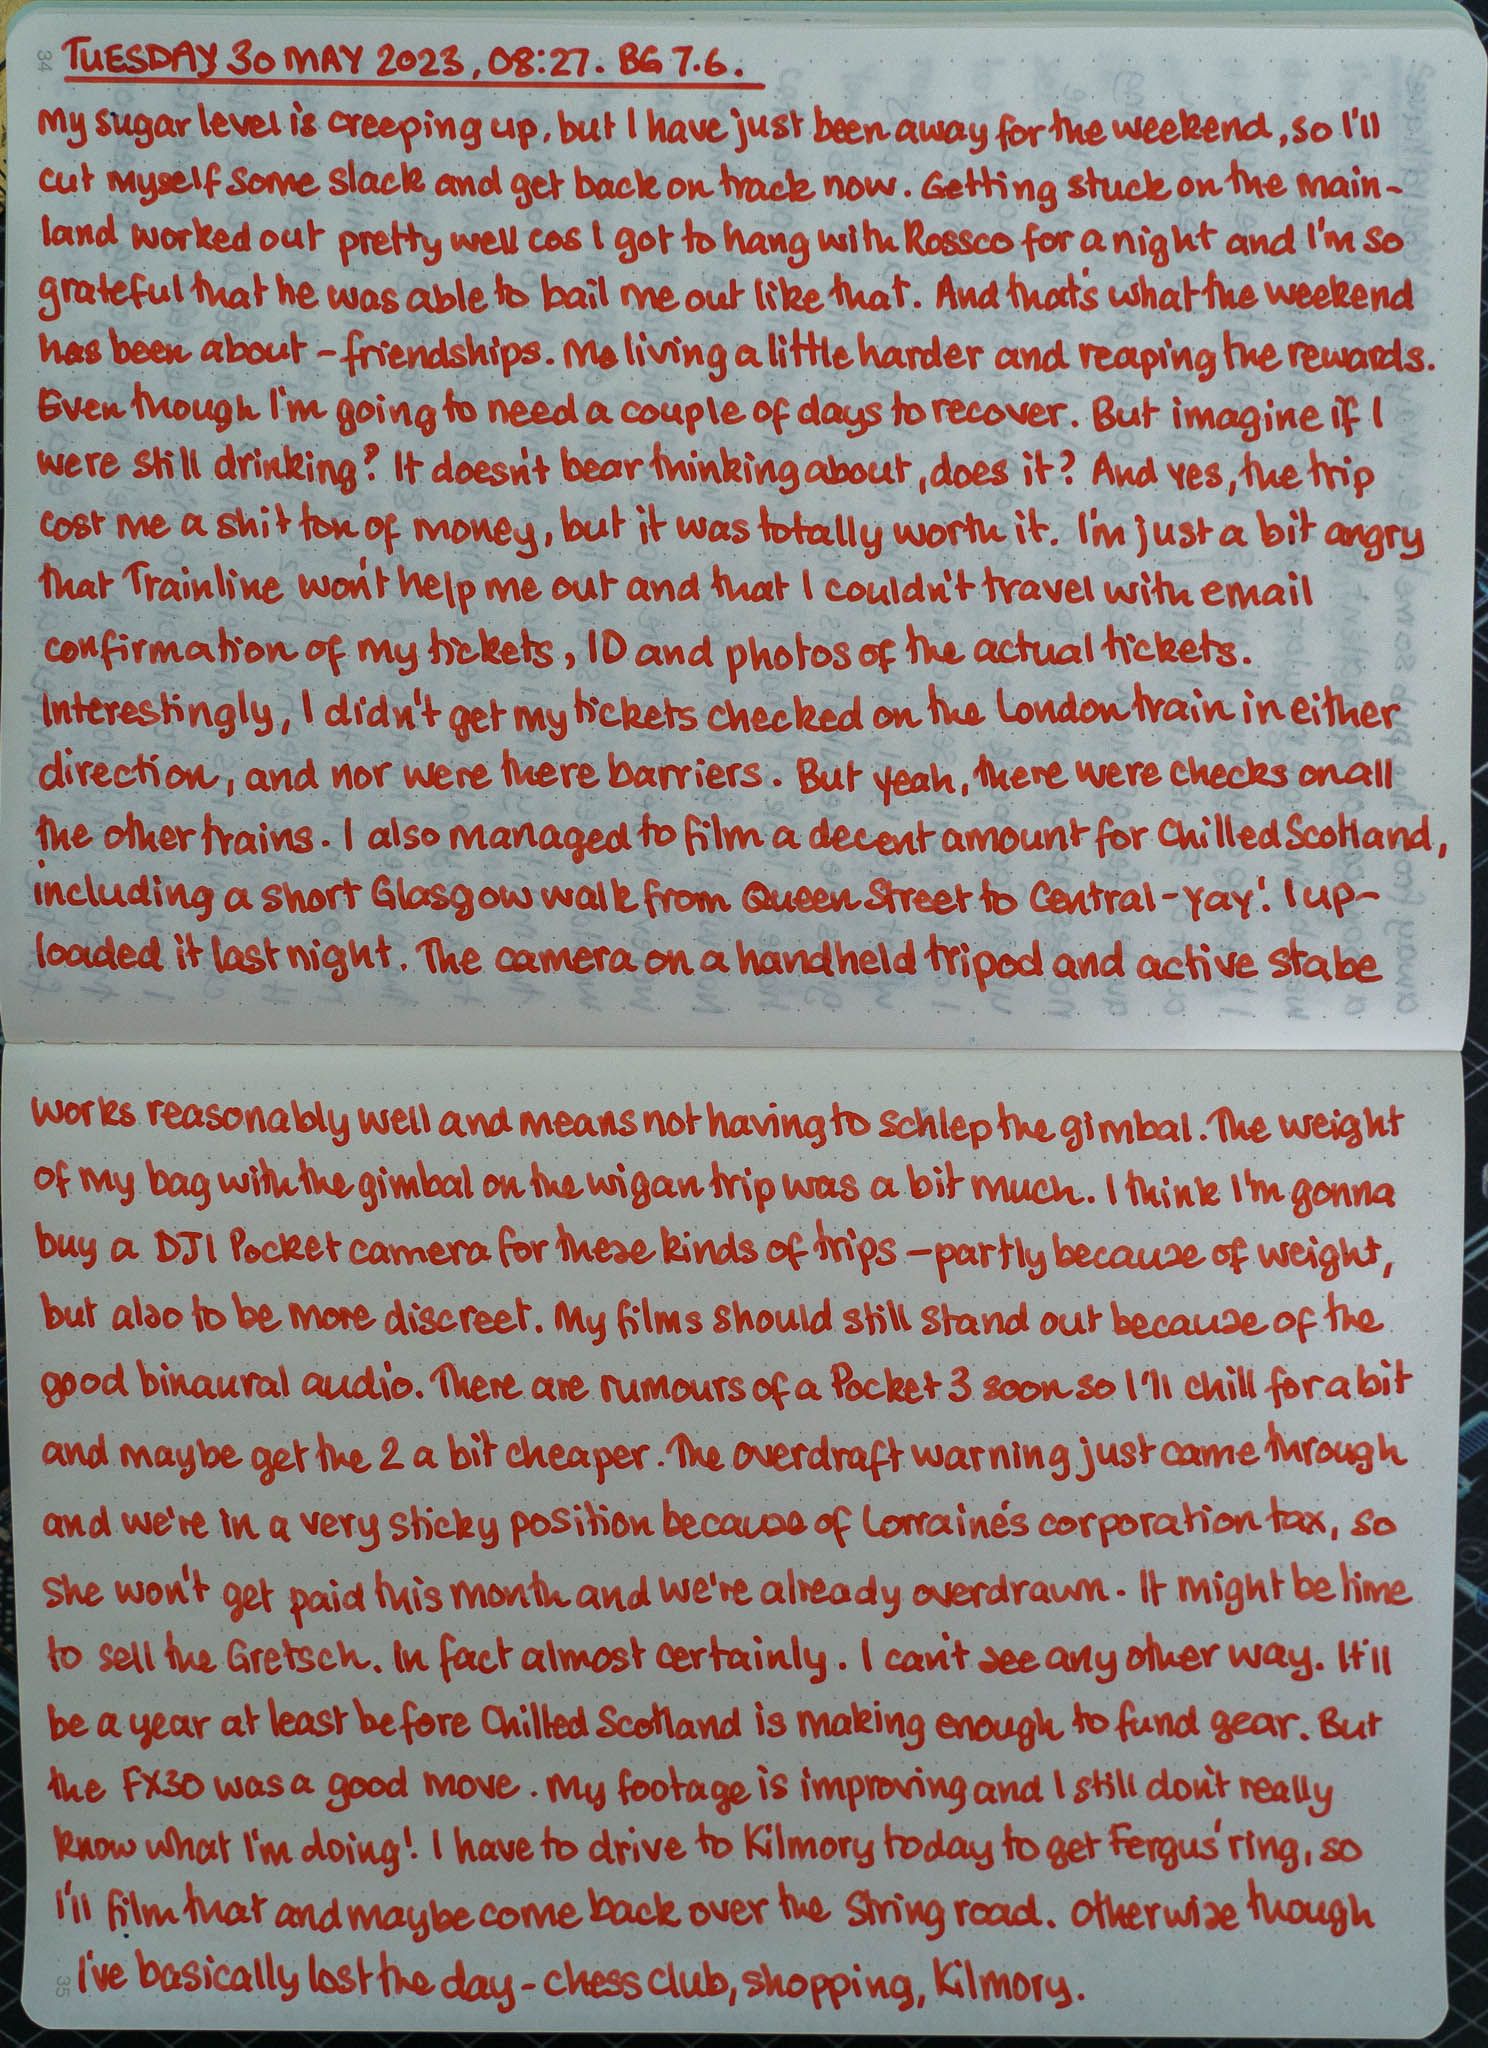 34
TUESDAY 30 MAY 2023, 08:27. BG 7.6.
My sugar level is creeping up, but I have just been away for the weekend, so I'll
cut myself some slack and get back on track now. Getting stuck on the main-
land worked out pretty well cos I got to hang with Rossco for a night and I'm so
grateful that he was able to bail me out like that. And that's what the weekend
has been about - friendships. Me living a little harder and reaping the rewards.
Even though I'm going to need a couple of days to recover. But imagine if I
were still drinking? It doesn't bear thinking about, does it? And yes, the trip
cost me a shit ton of money, but it was totally worth it. I'm just a bit angry
that Trainline won't help me out and that I couldn't travel with email
confirmation of my tickets, ID and photos of the actual tickets.
Interestingly, I didn't get my tickets checked on the London train in either
direction, and nor were there barriers. But yeah, there were checks on all
the other trains. I also managed to film a decent amount for Chilled Scotland,
including a short Glasgow walk from Queen Street to Central - yay! I up-
loaded it last night. The camera on a handheld tripod and active stabe
works reasonably well and means not having to schlep the gimbal. The weight
of my bag with the gimbal on the wigan trip was a bit much. I think I'm gonna
buy a DJI Pocket camera for these kinds of trips - partly because of weight,
but also to be more discreet. My films should still stand out because of the
good binaural audio. There are rumours of a Pocket 3 soon so I'll chill for a bit
and maybe get the 2 a bit cheaper. The overdraft warning just came through
and we're in a very sticky position because of Lorraine's corporation tax, so
she won't get paid this month and we're already overdrawn. It might be time
to sell the Gretsch. In fact almost certainly. I can't see any other way. It'll
be a year at least before Chilled Scotland is making enough to fund gear. But
the FX30 was a good move. My footage is improving and I still don't really
know what I'm doing! I have to drive to Kilmory today to get Fergus' ring, so
I'll film that and maybe come back over the String road. Otherwise though
I've basically lost the day - chess club, shopping, Kilmory.
35